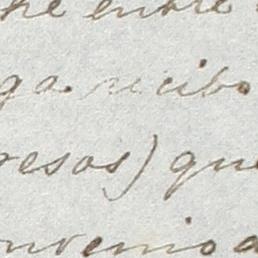 entre
ga. recibo
pesos) que
convenio a